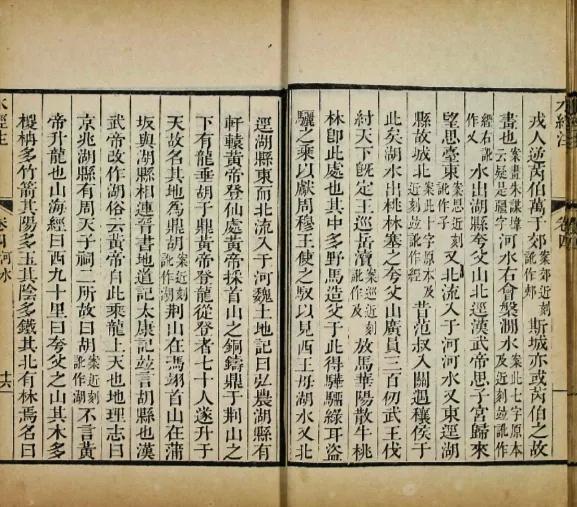 水經注
卷四
戎人逆芮伯萬于郊案郊近刻訛作郟斯城亦或芮伯之故
畫也案畫朱謀㙔云疑是疆字河水右會槃澗水案此七字原本及近刻竝訛作
經右訛作又水出湖縣夸父山北逕漢武帝思子宮歸來
望思臺東案思近刻訛作子又北流入于河河水又東逕湖
縣故城北案此十字原本及近刻竝訛作經昔范叔入關遇穰侯于
此矣湖水出桃林塞之夸父山廣員三百仞武王伐
紂天下旣定王巡岳瀆案巡近刻訛作及放馬華陽散牛桃
林卽此處也其中多野馬造父于此得驊騮綠耳盜
驪之乘以獻周穆王使之馭以見西王母湖水又北
逕湖縣東而北流入于河魏土地記曰弘農湖縣有
軒轅黃帝登仙處黃帝採首山之銅鑄鼎于荊山之
下有龍垂胡于鼎黃帝登龍從登者七十人遂升于
天故名其地爲鼎胡案近刻訛作湖荊山在馮翊首山在蒲
坂與湖縣相連晉書地道記太康記竝言胡縣也漢
武帝改作湖俗云黃帝自此乘龍上天也地理志曰
京兆湖縣有周天子祠二所故曰胡案近刻訛作湖不言黃
帝升龍也山海經曰西九十里曰夸父之山其木多
椶枏多竹箭其陽多玉其陰多鐵其北有林焉名曰
水經注
卷四 河水
十六